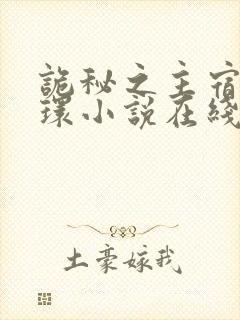 詭秘之主宿
環小說在綫
土豪嫁我